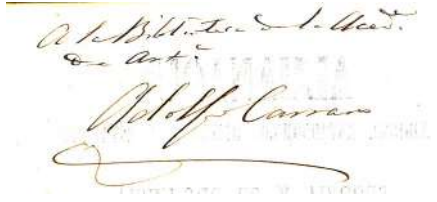 A la Biblioteca de la Acad.
de Art.
Adolfo Carran